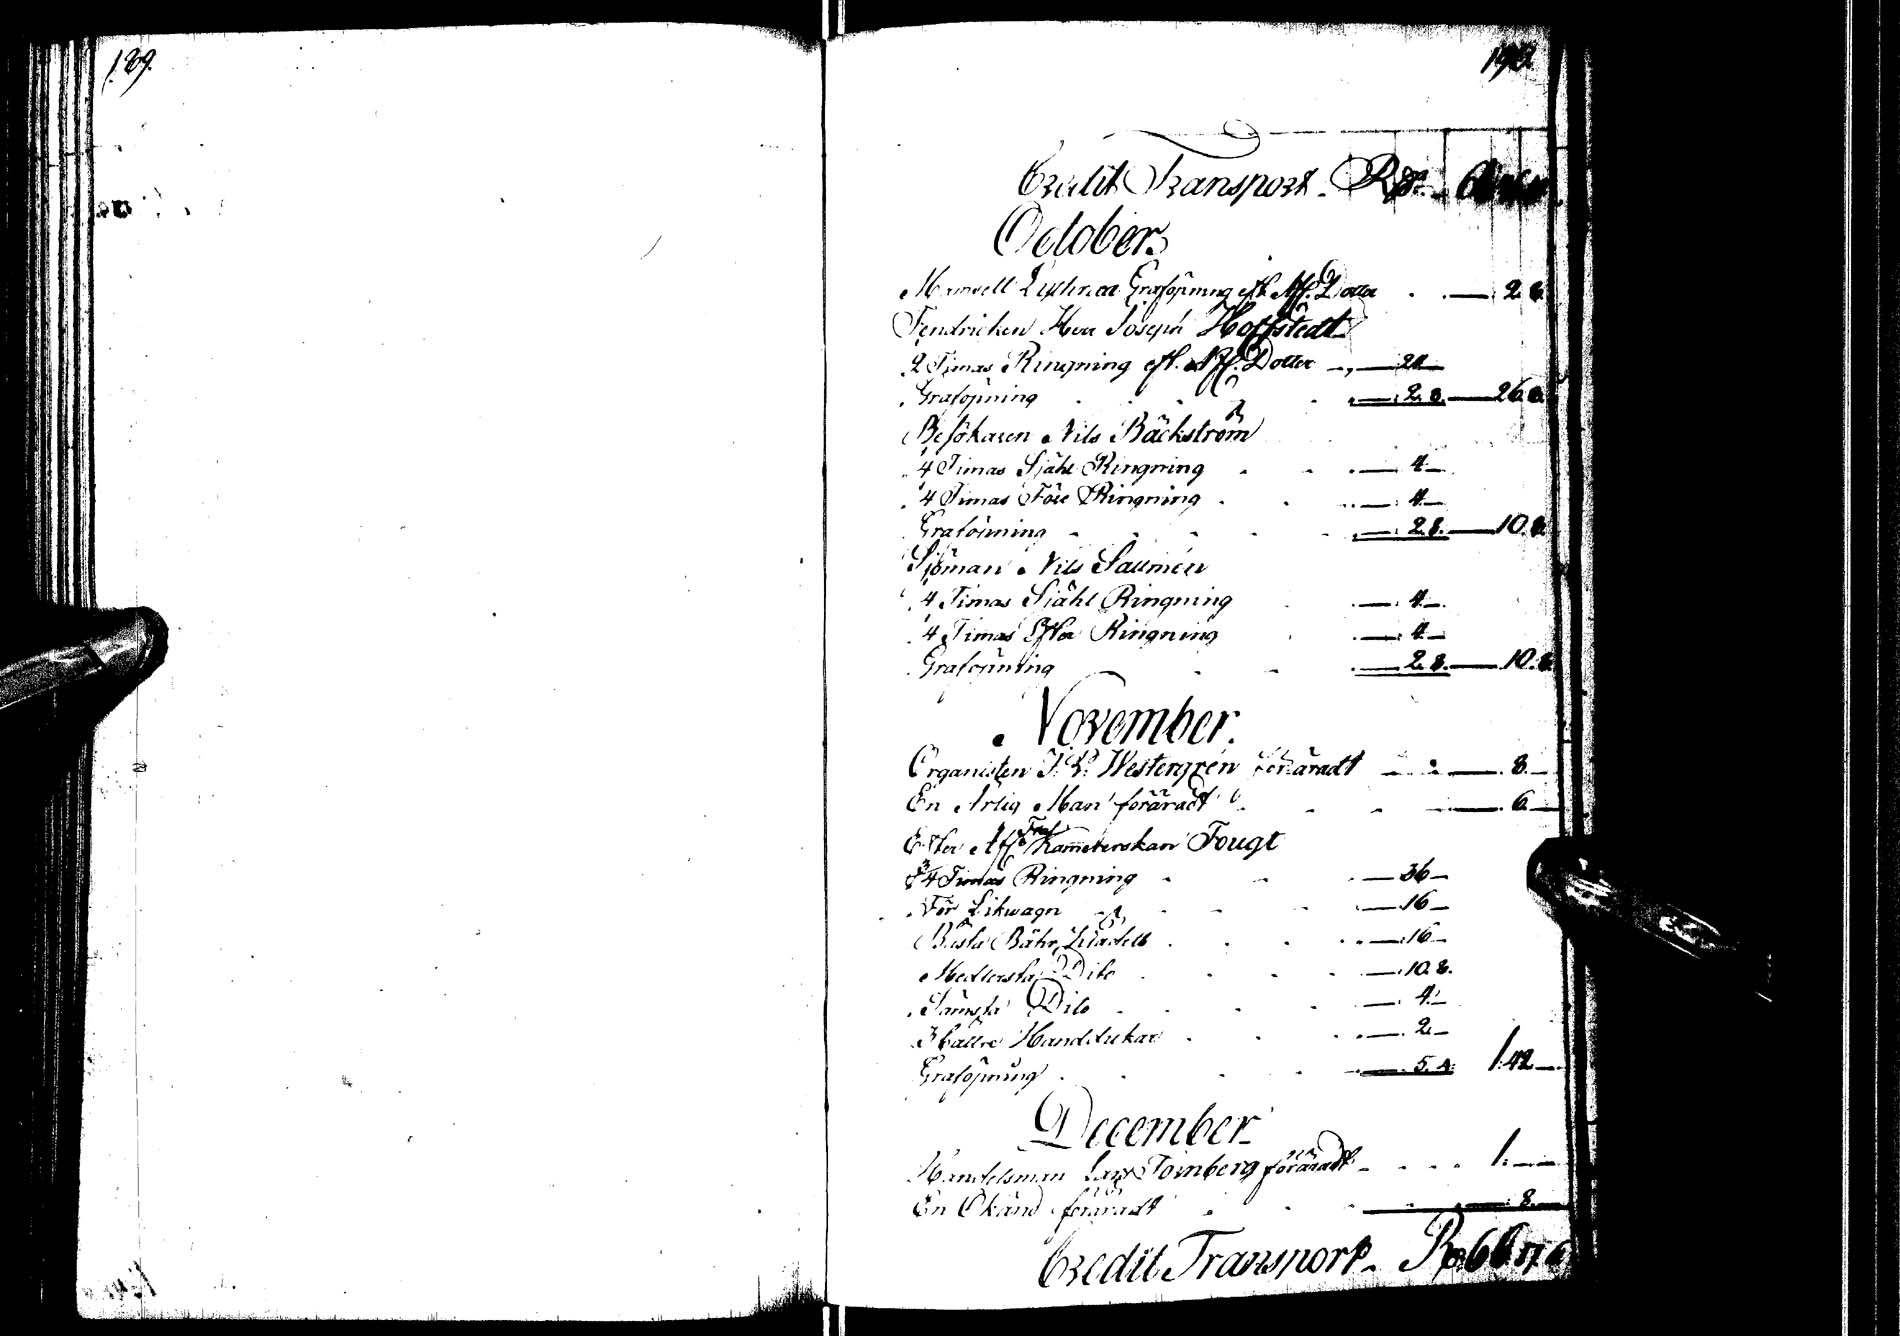 189.
190.
Credit Transport. Rdr.
October.
Mamsell Graföpning eft. Aff. Dotter . . — 2. 8.
Fendricken Herr Joseph Hoffstedt
2 Timas Ringning eft. Aff. Dotter — 24 —
Graföpning . . . — 2. 8. — 26. 8.
Besökaren Nils Bäckström
4 Timas Sjähl Ringning . . . — 4. —
4 Timas Före Ringning . . . — 4. —
Graföpning . . . — 2. 8. — 10. 8.
Sjöman Nils Sallmén
4 Timas Sjähl Ringning . — 4. —
4 Timas Efter Ringning . — 4. —
Graföpning . . . — 2. 8. — 10. 8.
November.
Organisten Westergrén föräradt . . — 8. —
En Ärlig Man föräradt . . . — 6. —
Efter Aff. Fru Kamererskan Fougt
Timas Ringning . . . — 36 —
För Likwagn . . . — 16 —
Bästa Bahr Klädett . . . — 16 —
Medlersta Dito . . . — 10. 8.
Sämsta Dito . . . — 4. —
3 bättre Handdukar . . . — 2. —
Graföpning . . . — 5. 4. 1. 42 —
December.
Handelsman Lars Törnberg föräradt . . . 1. —
En Okänd föräradt . . . — 8. —
Credit Transport. Rdr 66